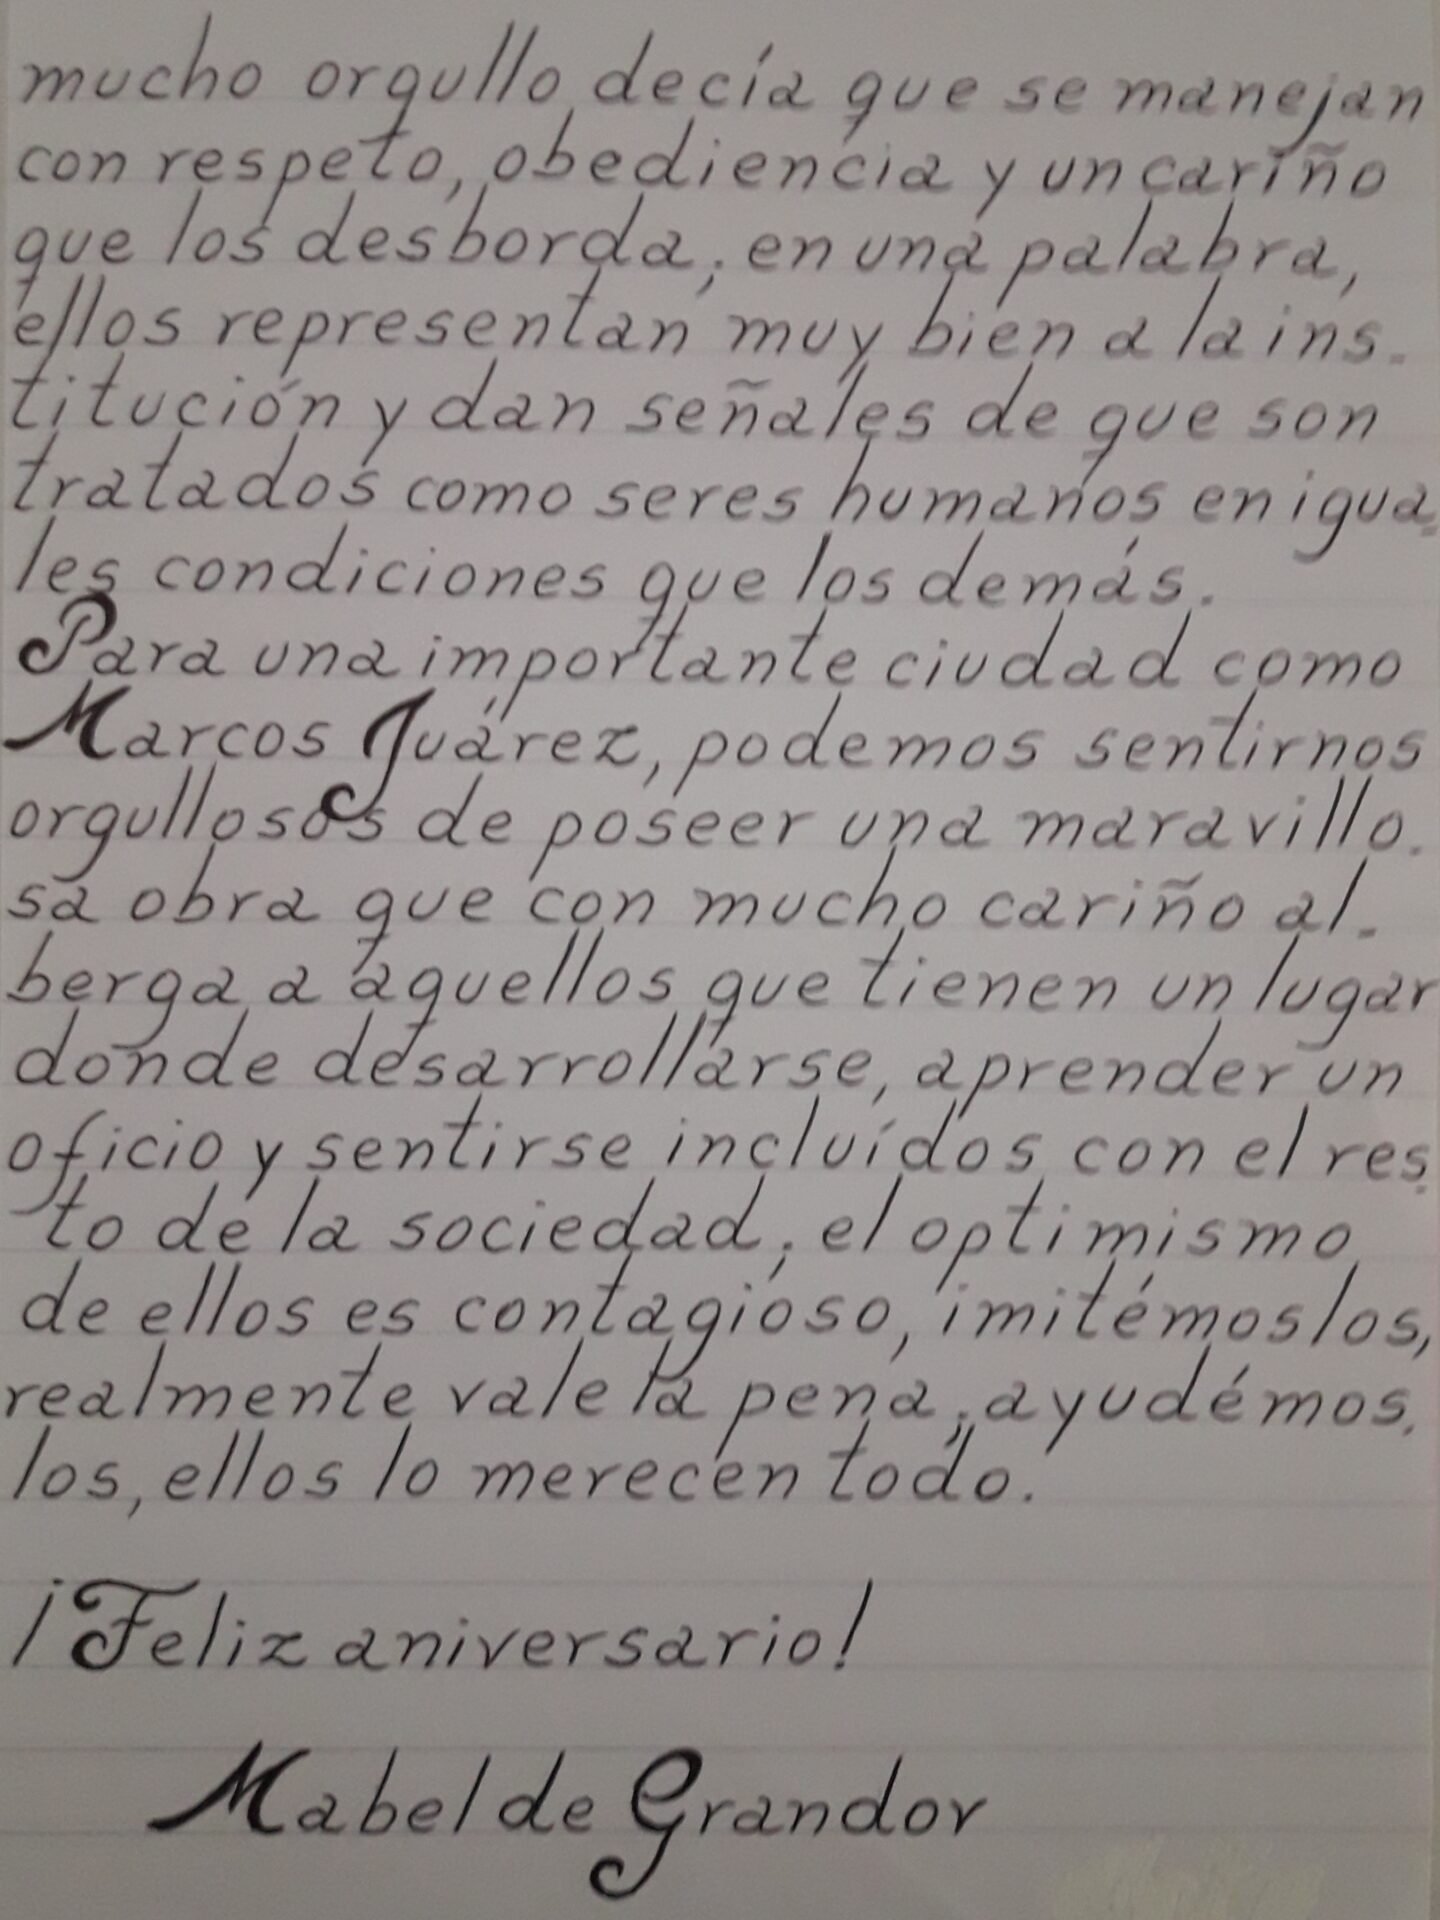 mucho orgullo decía que se manejan
con respeto, obediencia y un cariño
que los desborda; en una palabra,
ellos representan muy bien a la ins-
titución y dan señales de que son
tratados como seres humanos en igua-
les condiciones que los demás.
Para una importante ciudad como
Marcos Juárez, podemos sentirnos
orgullosos de poseer una maravillo-
sa obra que con mucho cariño al-
berga a aquellos que tienen un lugar
donde desarrollarse, aprender un
oficio y sentirse incluídos con el res-
to de la sociedad; el optimismo
de ellos es contagioso, imitémoslos,
realmente vale la pena; ayudémos-
los, ellos lo merecen todo.
¡Feliz aniversario!
Mabel de Grandor